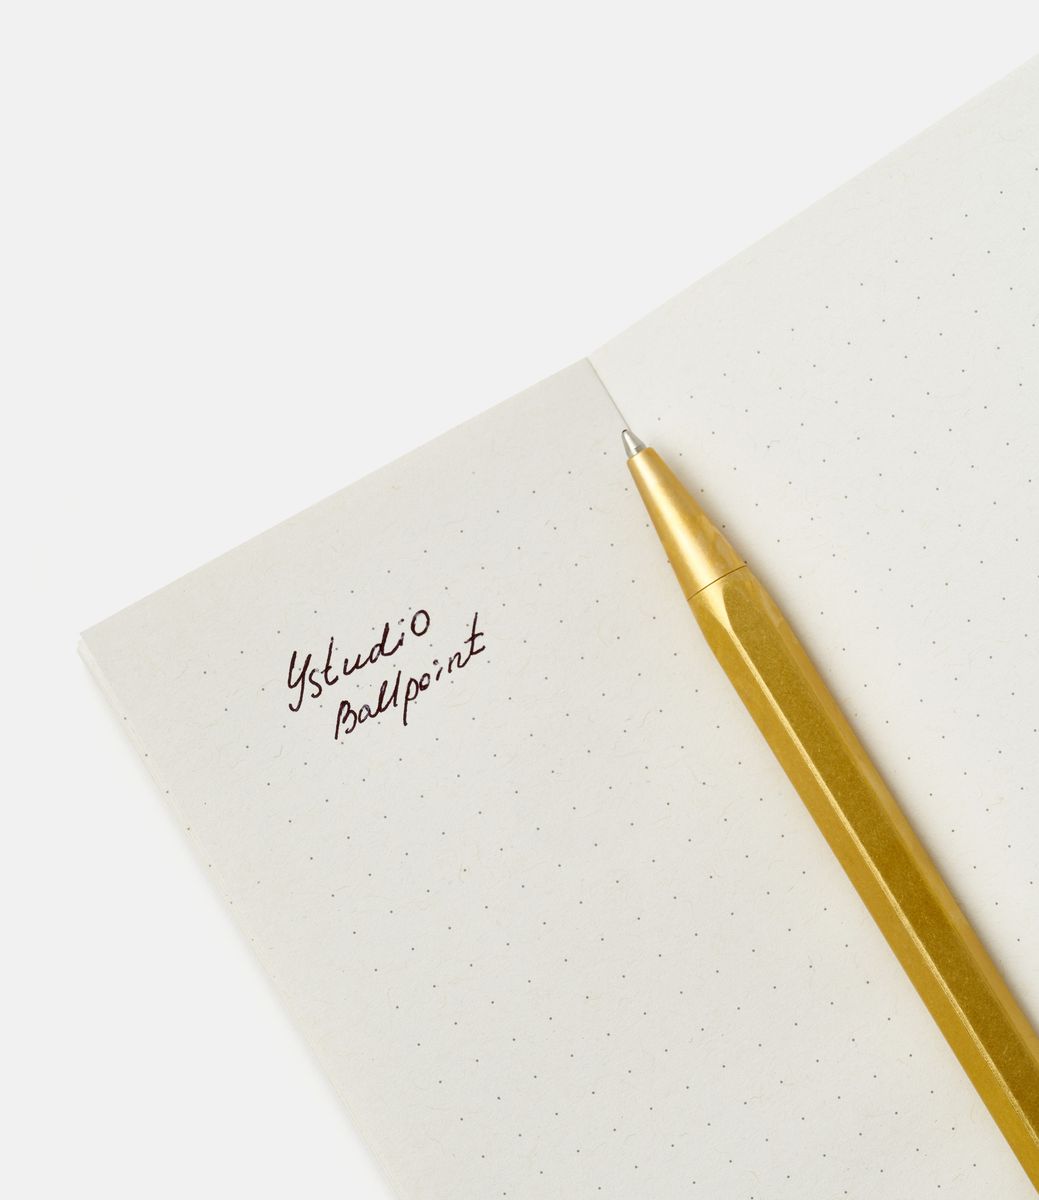 Ystudio
Ballpoint